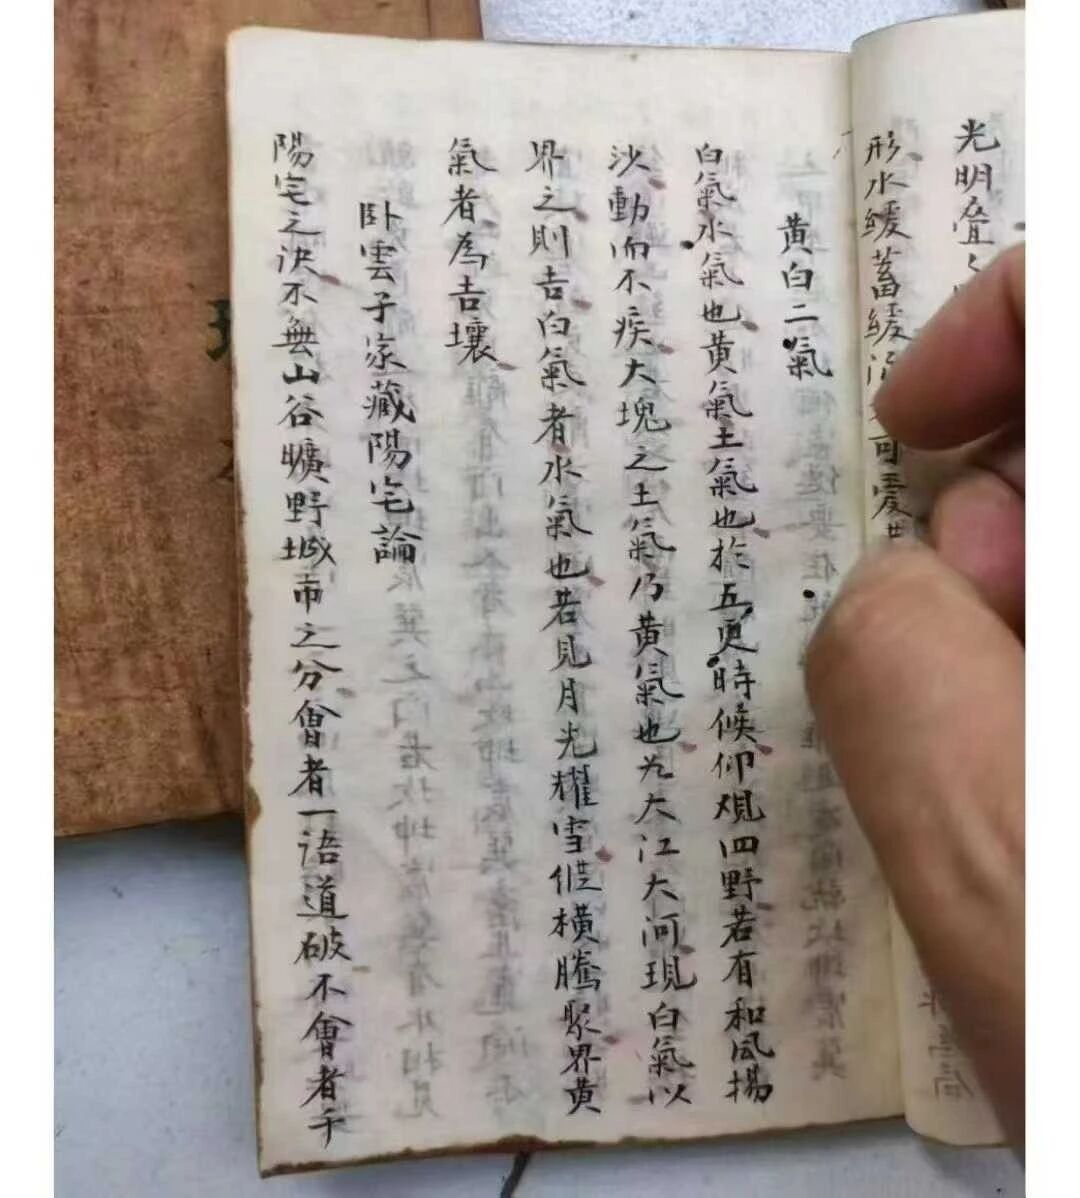 光明叠
形水緩蓄緩
可愛
黄白二氣
白氣水氣也黄氣土氣也於五更時候仰观四野若有和風揚
沙動而不疾大塊之土氣乃黄氣也为大江大河現白氣以
界之則吉白氣者水氣也若見月光耀雪僙横騰聚界黄
氣者為吉壤
卧雲子家藏陽宅論
陽宅之决不無山谷曠野城市之分會者一语道破不會者千